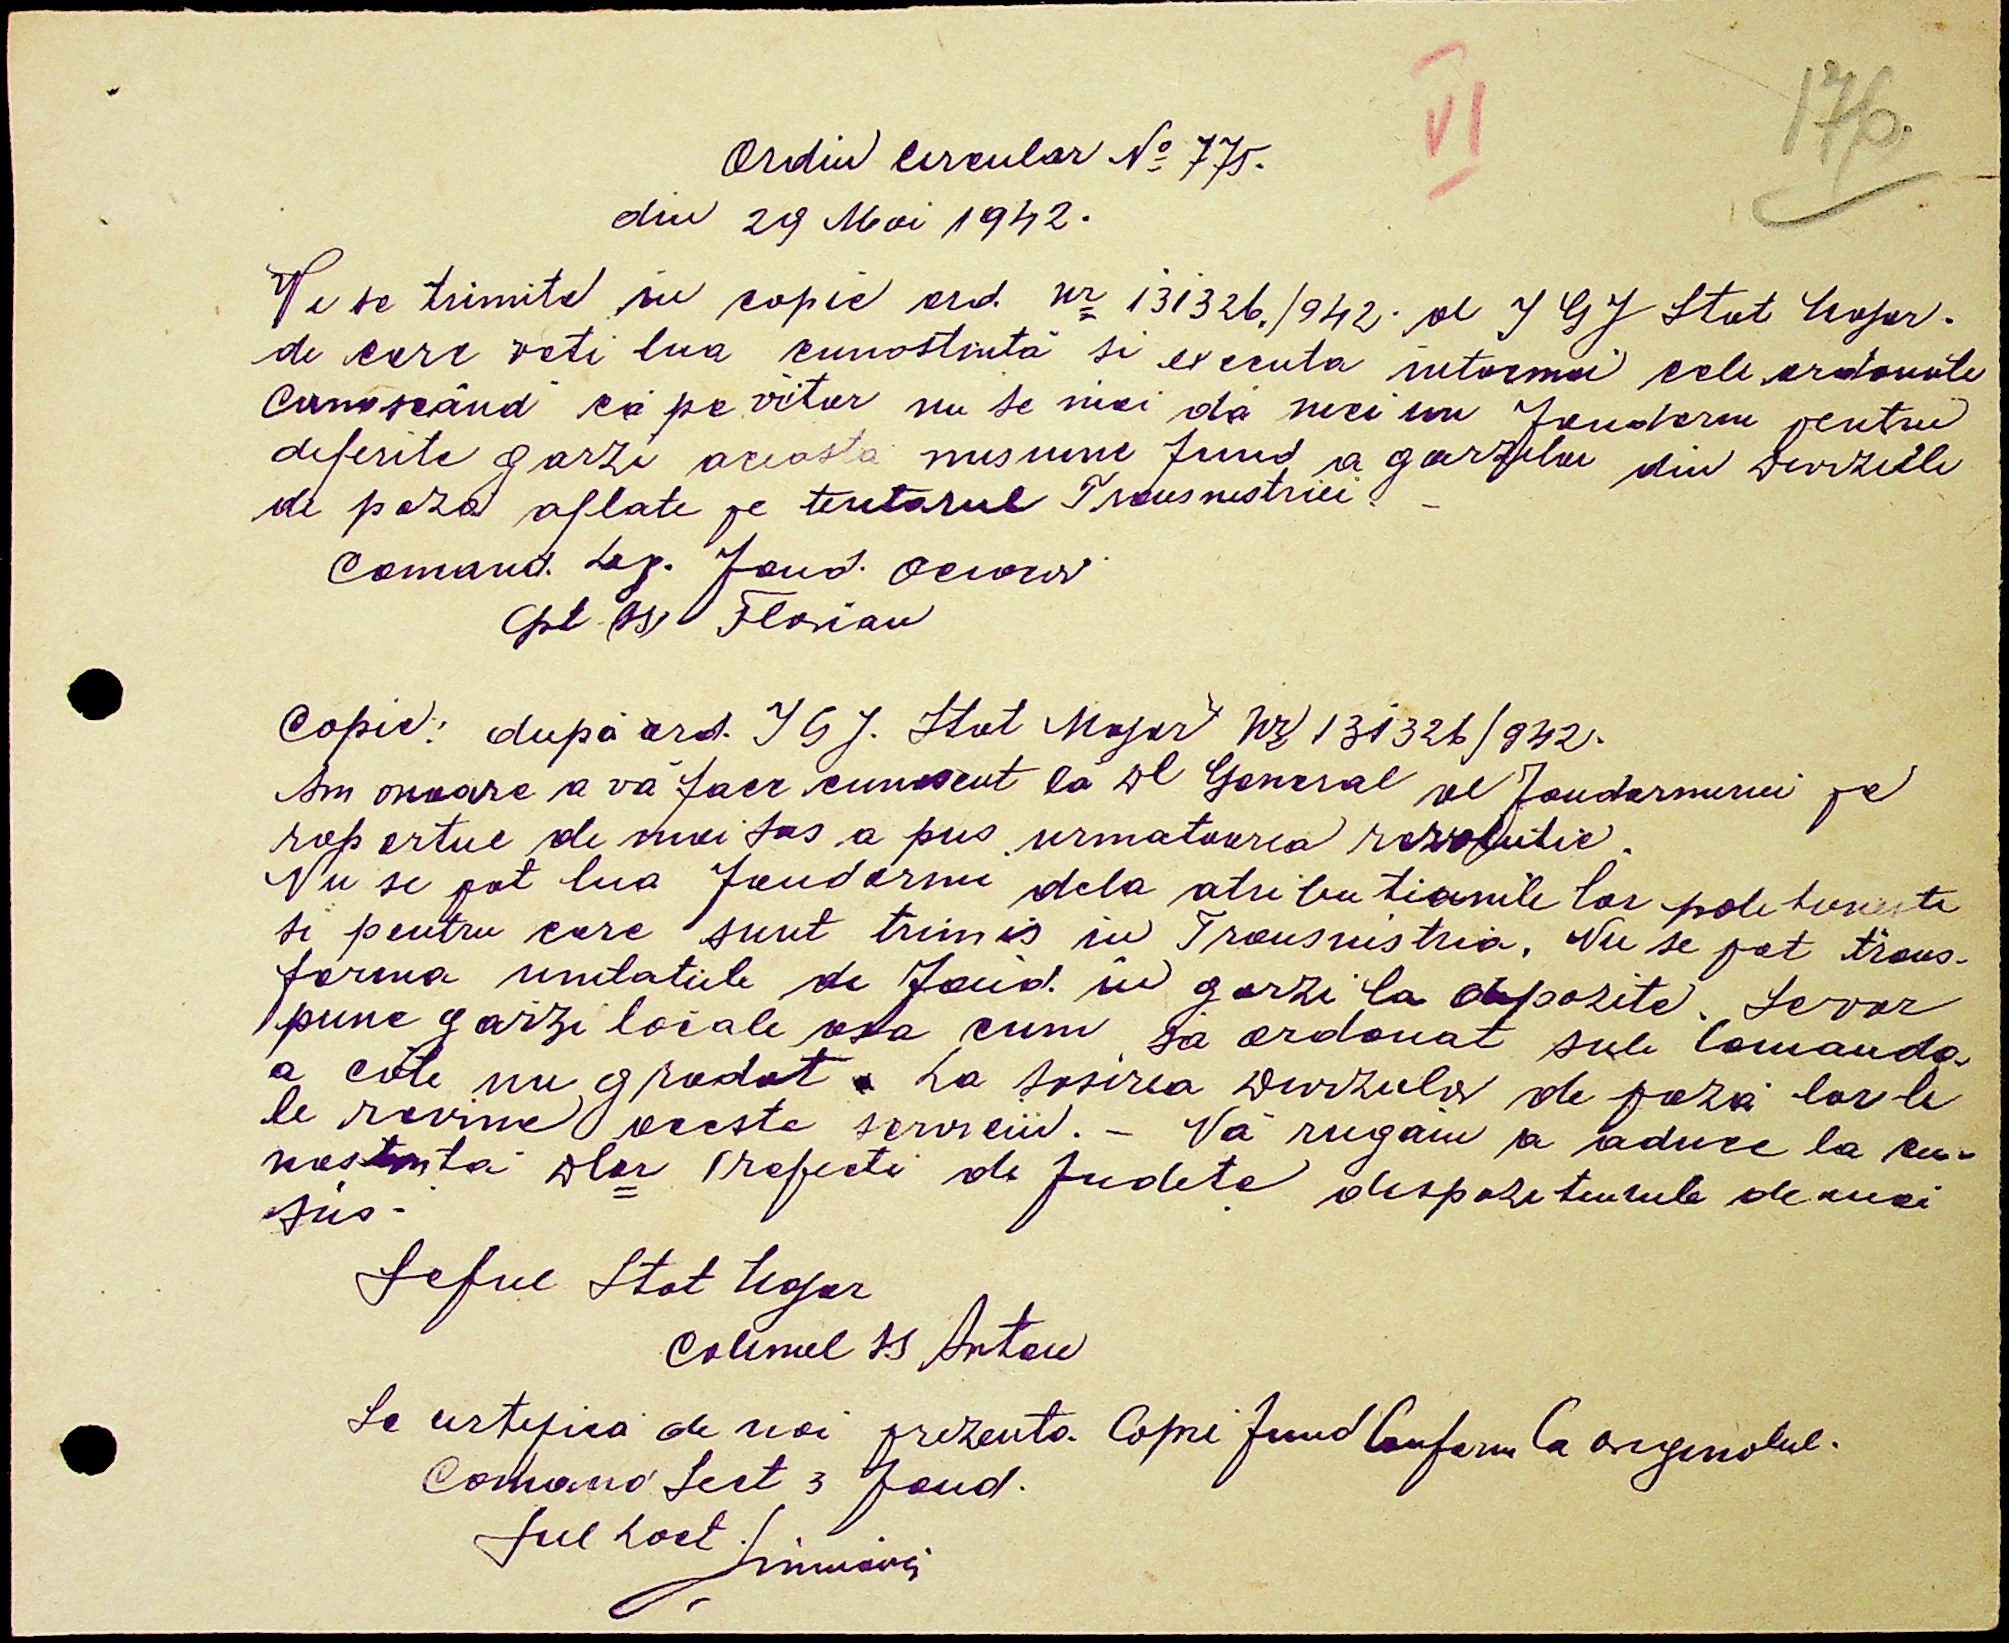 VI
176.
Ordin Circular No 775.
din 29 Mai 1942.
Vi se trimite in copie ord. Nr 131326./942. al I G J Stat Major.
de care veti lua cunostintă si executa intocmai cele ordonate
Cunoscând că pe viitor nu se mai dă nici un Jandarm pentru
diferite garzi aceasta misiune fiind a garzilor din Divizile
de pază aflate pe teritorul Transnistriei. -
Comand. Leg. Jand. Oceacov
Cpt (ss) Florian
Copie: după ord. I G J. Stat Major Nr 131326/942.
Am onoare a vă face cunoscut că Dl General al Jandarmeriei pe
raportul de mai sus a pus urmatoarea rezolutie.
Nu se pot lua Jandarmi dela atributiunile lor
si pentru care sunt trimis in Transnistria. Nu se pot trans-
forma unitatile de Jand. in garzi la depozite. Se vor
pune garzi locale asa cum să ordonat sub Comanda
a câte un gradat. La sosirea Diviziilor de pază lor le
le revine aceste serviciii. - Vă rugăm a aduce la cu-
nostinta Dlor Prefecti de Judete dispozitiunile de mai
sus.
Seful Stat Major
Colonel ss Anton
Se certifică de noi prezenta Copie fiind Conform Ca originalul.
Comand Sect 3 Jand.